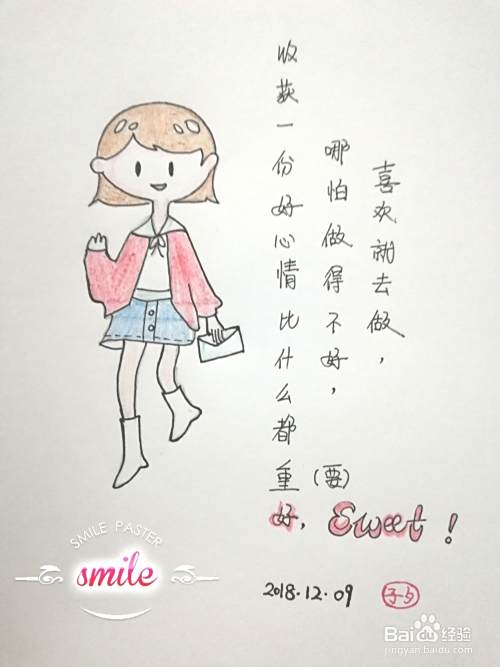 喜欢就去做，
哪怕做得不好，
收获一份好心情比什么都重(要)
好，Sweet！
2018.12.09
子与
SMILE PASTER
smile
Bai du 经验
jingyan.baidu.com